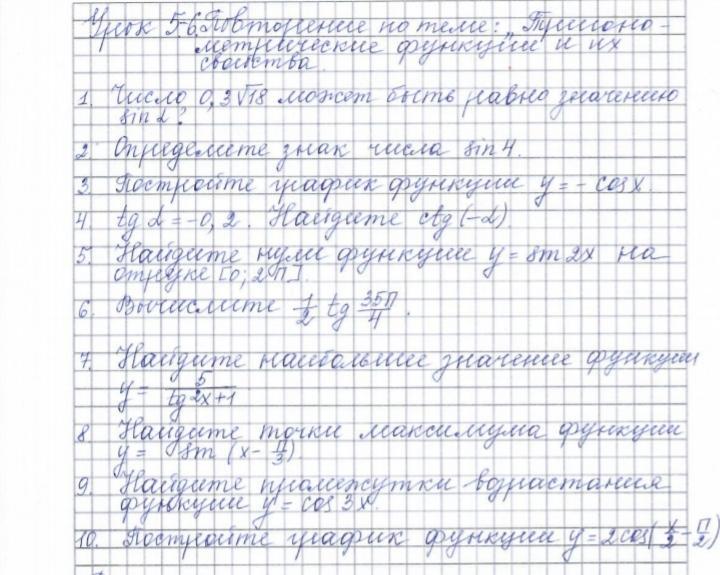 Урок 5-6. Повторение по теме: „Тригоно-
метрические функции и их
свойства.
1. Число 0,3√18 может быть равно значению
sin α?
2. Определите знак числа sin 4.
3. Постройте график функции y = - cos x.
4. tg α = -0,2. Найдите ctg (-α)
5. Найдите нули функции y = sin 2x на
отрезке [0; 2π].
6. Вычислите 1/2 tg 35π/4.
7. Найдите наибольшее значение функции
y = 5/(tg²x+1)
8. Найдите точки максимума функции
y = sin (x - π/3)
9. Найдите промежутки возрастания
функции y = cos 3x.
10. Постройте график функции y = 2cos(x/2 - π/2)